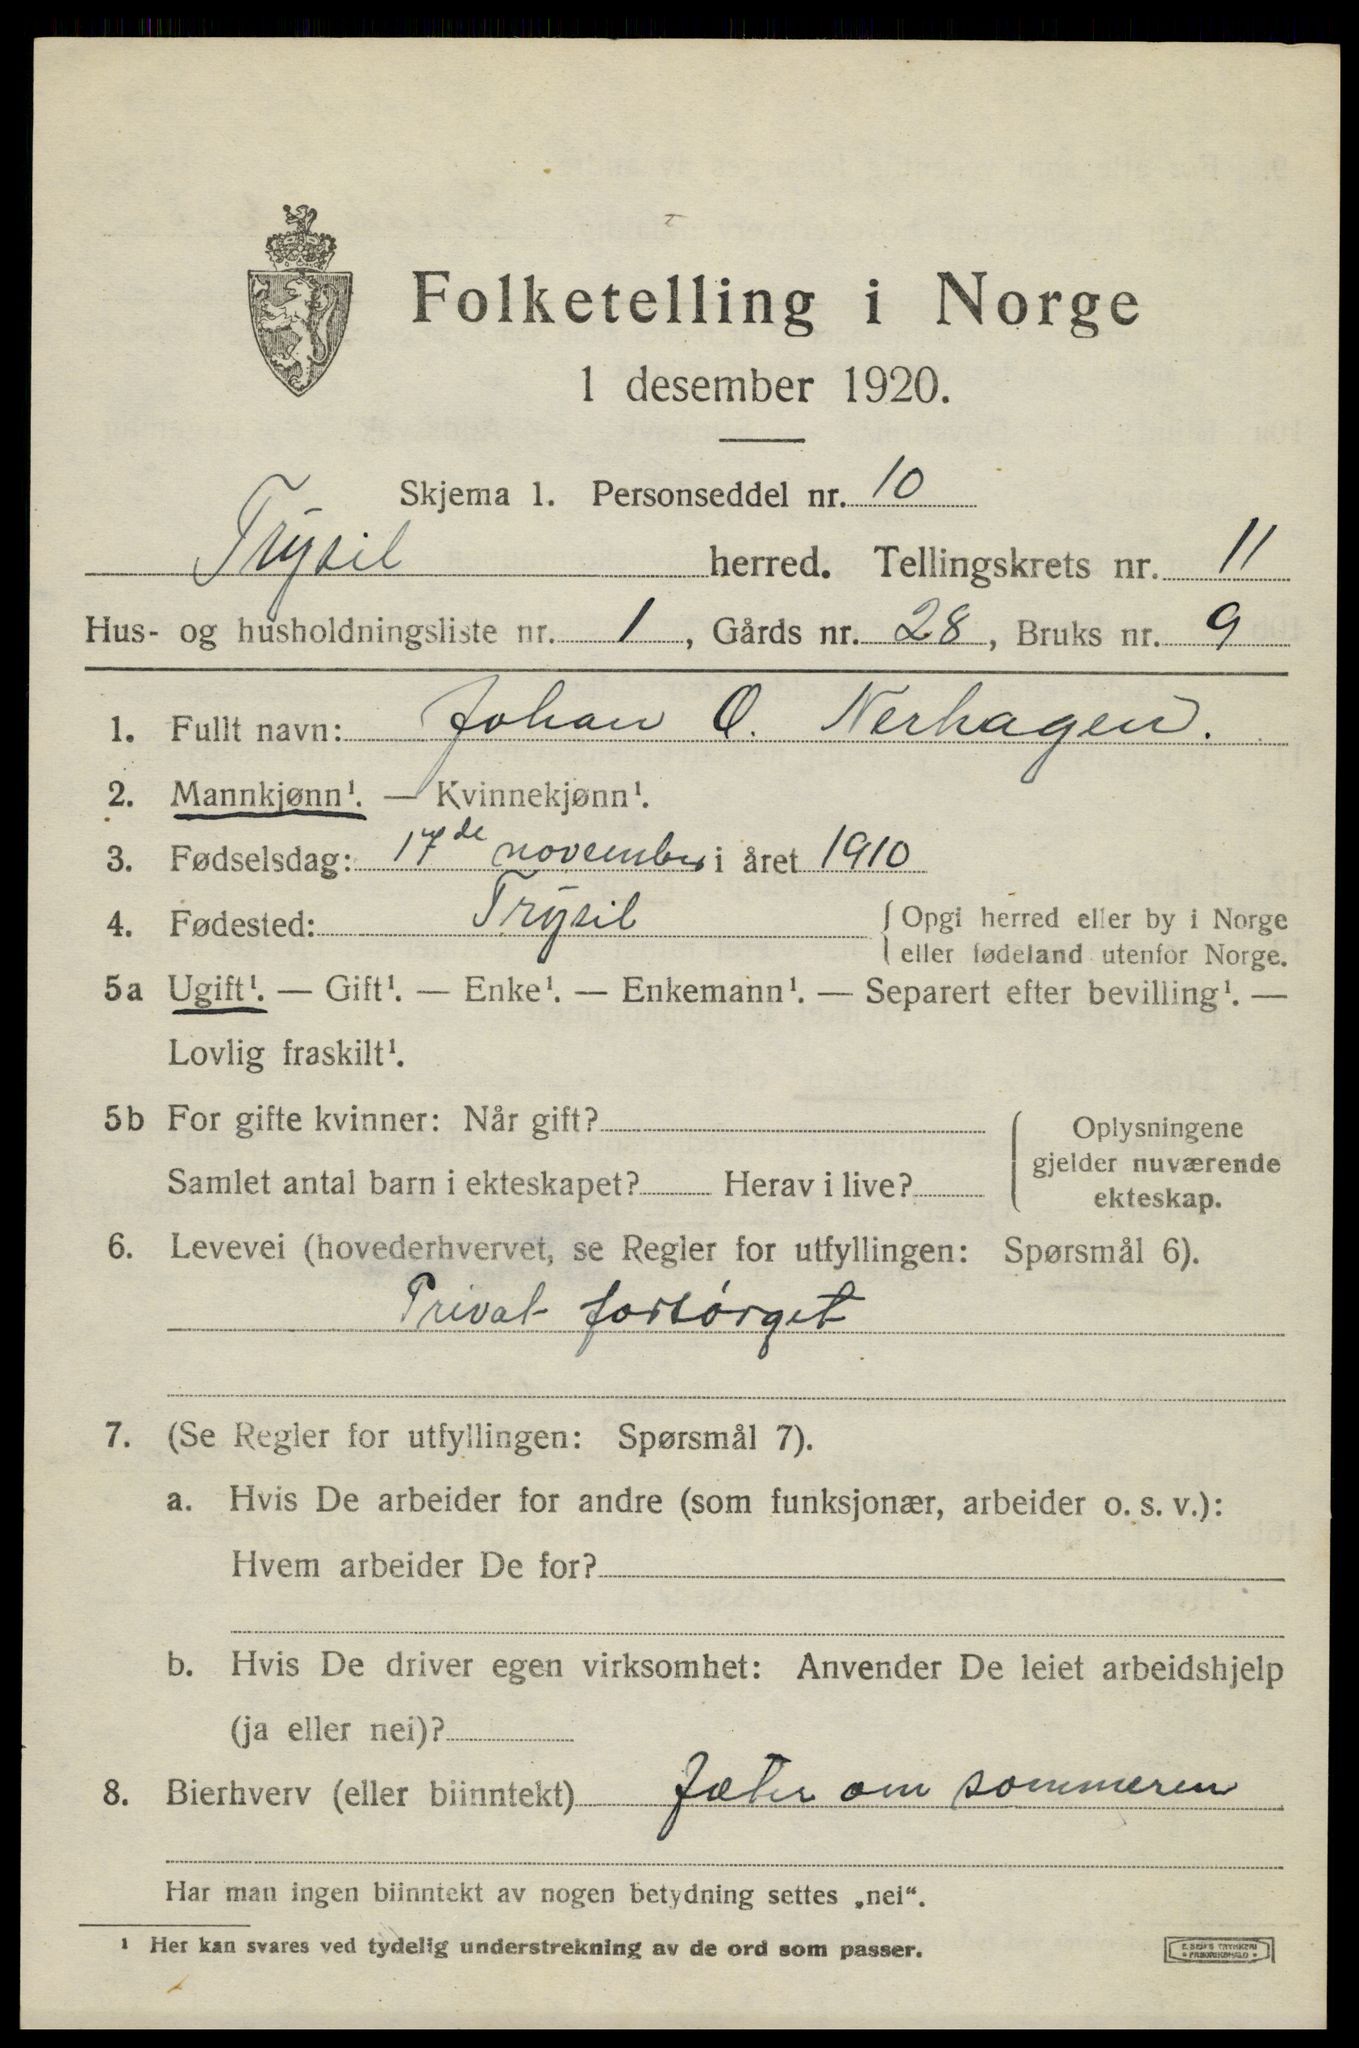 Folketelling i Norge
1 desember 1920.
Skjema 1. Personseddel nr. 10
Trysil herred. Tellingskrets nr. 11
Hus- og husholdningsliste nr. 1, Gårds nr. 28, Bruks nr. 9
1. Fullt navn: Johan O. Nerhagen.
2. Mannkjønn¹. — Kvinnekjønn¹.
3. Fødselsdag: 17de november i året 1910
4. Fødested: Trysil { Opgi herred eller by i Norge
eller fødeland utenfor Norge.
5a Ugift¹. — Gift¹. — Enke¹. — Enkemann¹. — Separert efter bevilling¹. —
Lovlig fraskilt¹.
5b For gifte kvinner: Når gift?
Samlet antal barn i ekteskapet? Herav i live?
Oplysningene
gjelder nuværende
ekteskap.
6. Levevei (hovederhvervet, se Regler for utfyllingen: Spørsmål 6).
Privat forsørget
7. (Se Regler for utfyllingen: Spørsmål 7).
a. Hvis De arbeider for andre (som funksjonær, arbeider o. s. v.):
Hvem arbeider De for?
b. Hvis De driver egen virksomhet: Anvender De leiet arbeidshjelp
(ja eller nei)?
8. Bierhverv (eller biinntekt) Jæter om sommeren
Har man ingen biinntekt av nogen betydning settes „nei“.
¹ Her kan svares ved tydelig understrekning av de ord som passer.